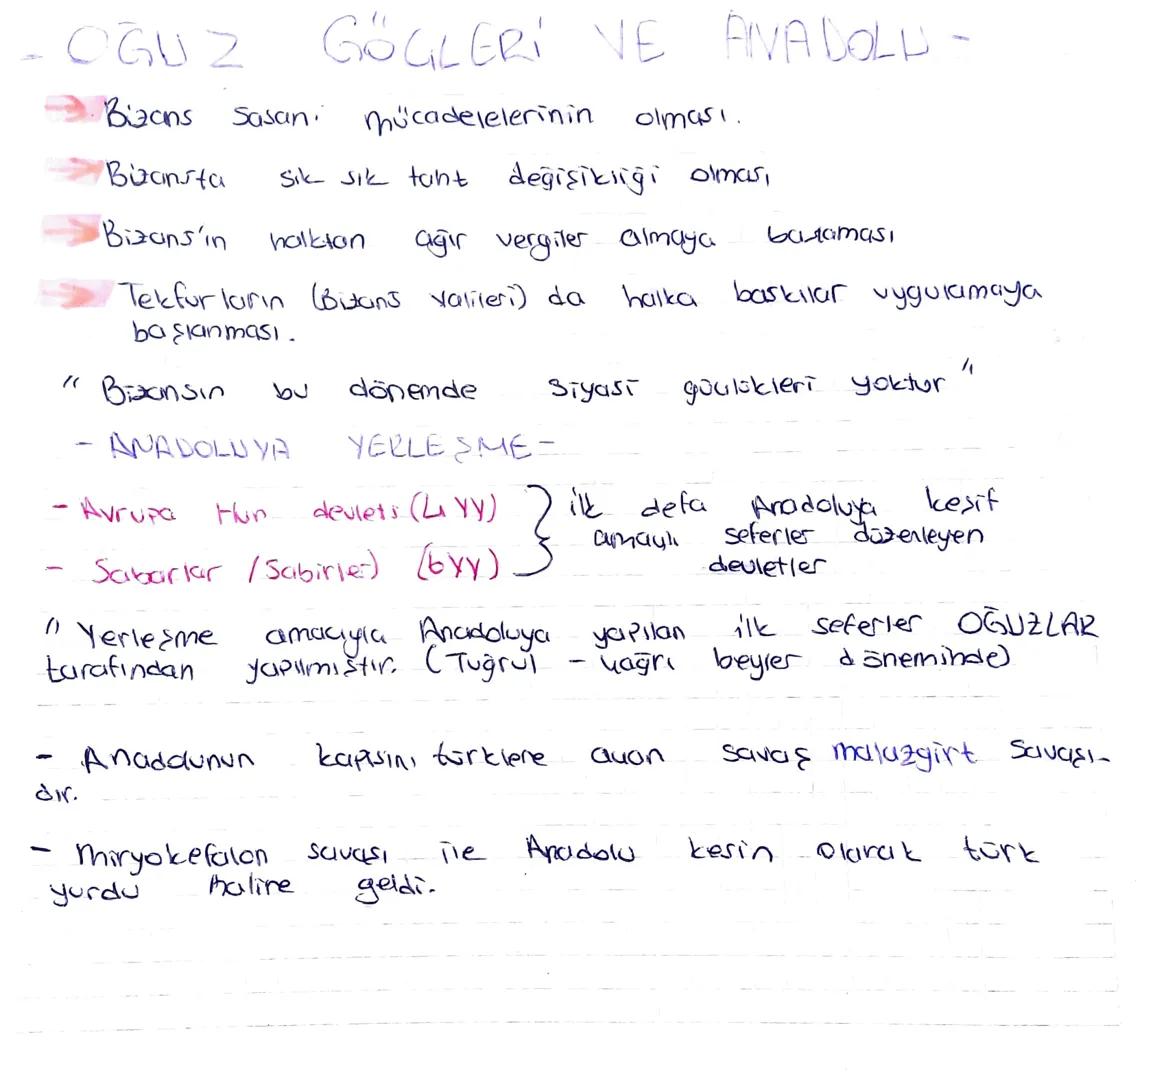 - OĞUZ GÖÇLERİ VE ANADOLU -
→ Bizans Sasani mücadelelerinin olması.
→ Bizansta sık sık taht değişikliği olması
→ Bizans'ın halktan ağır vergiler almaya başlaması
→ Tekfurların (Bizans valileri) da halka baskılar uygulamaya
başlanması.
" Bizansın bu dönemde siyasi güçlükleri yoktur "
- ANADOLUYA YERLEŞME -
- Avrupa Hun devleti (4 YY) } ilk defa Anadoluya keşif
amaçlı seferler düzenleyen
- Sabarlar / Sabirler) (6 YY) devletler
" Yerleşme amacıyla Anadoluya yapılan ilk seferler OĞUZLAR
tarafından yapılmıştır. (Tuğrul - Çağrı beyler döneminde)
- Anadolunun kapısını türklere açan savaş malazgirt savaşı-
dır.
- Miryokefalon savaşı ile Anadolu kesin olarak türk
yurdu haline geldi.